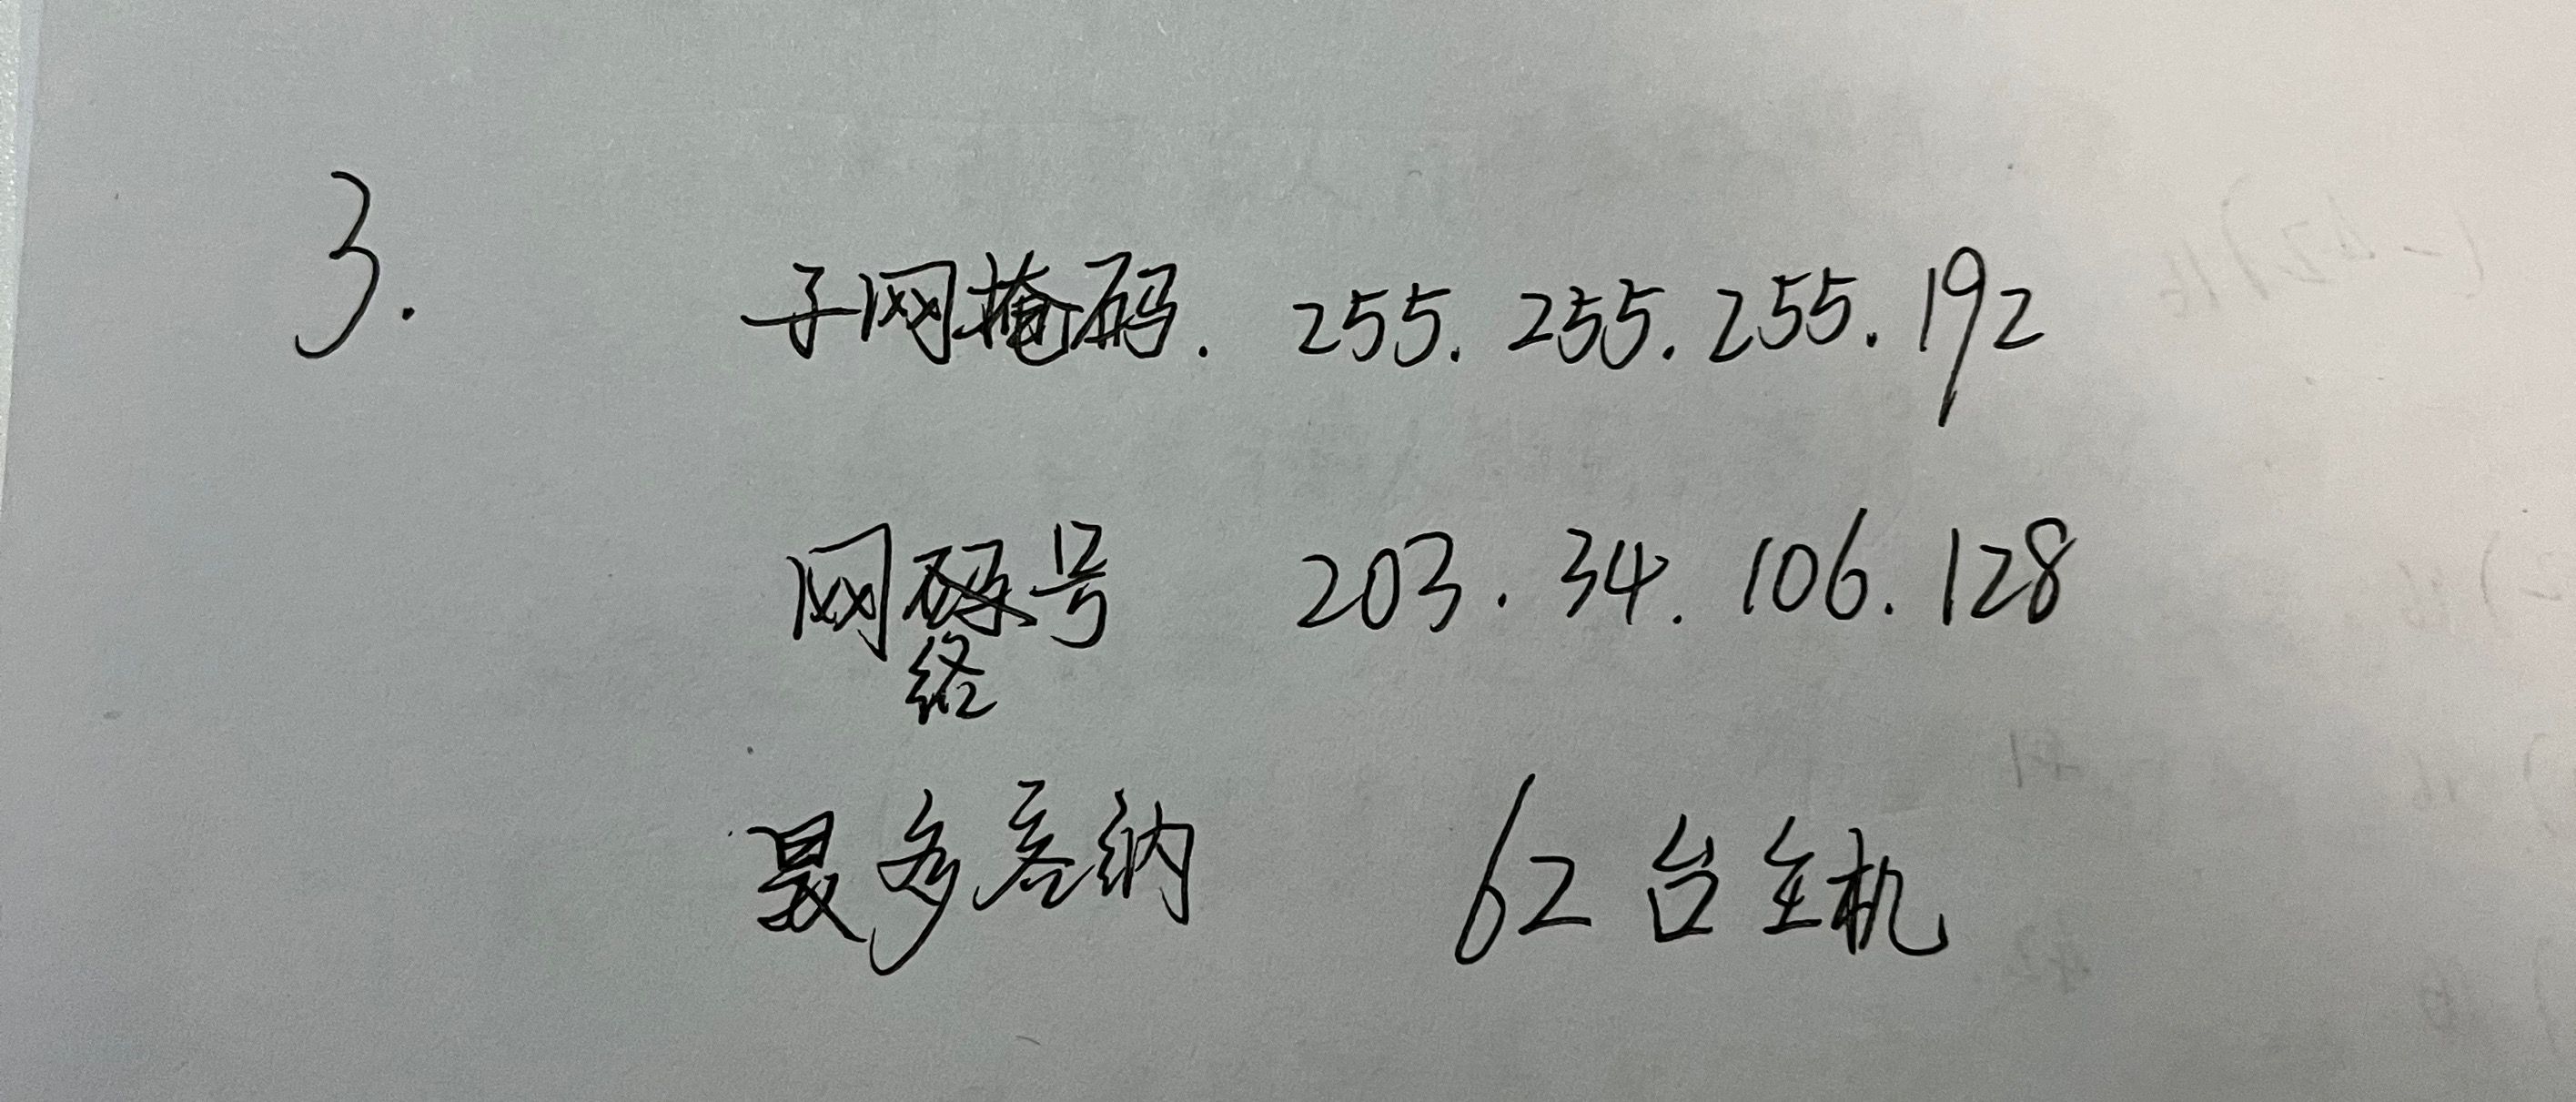 3. 子网掩码. 255. 255. 255. 192
网络号 203. 34. 106. 128
最多容纳 62台主机